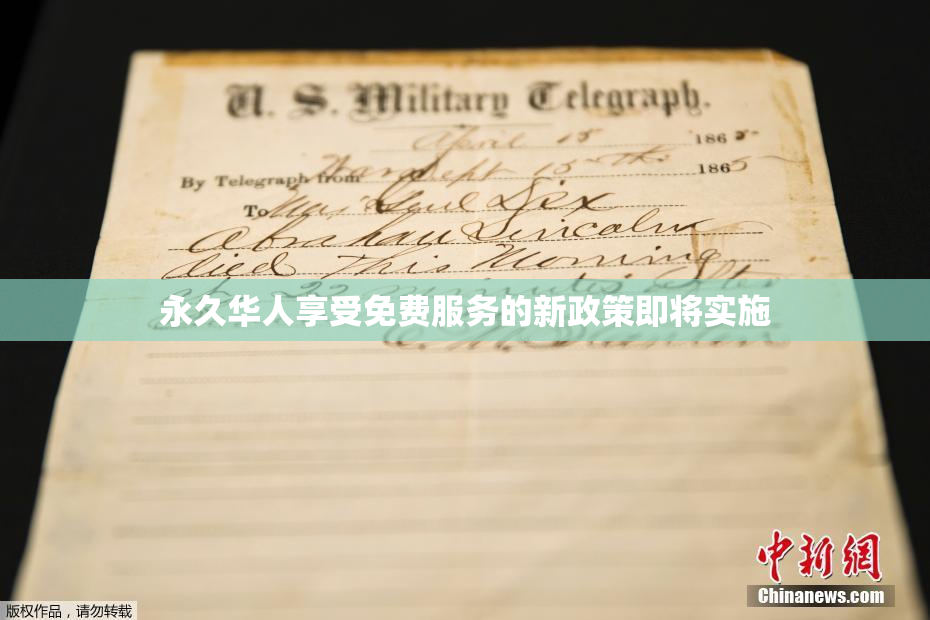 U. S. Military Telegraph.
April 15 1865
By Telegraph from War Dept 15th 1865
To Maj Genl Dix
Abraham Lincoln
died This Morning
at 22 minutes after
永久华人享受免费服务的新政策即将实施
E. M. Stanton
中新网
Chinanews.com
版权作品，请勿转载